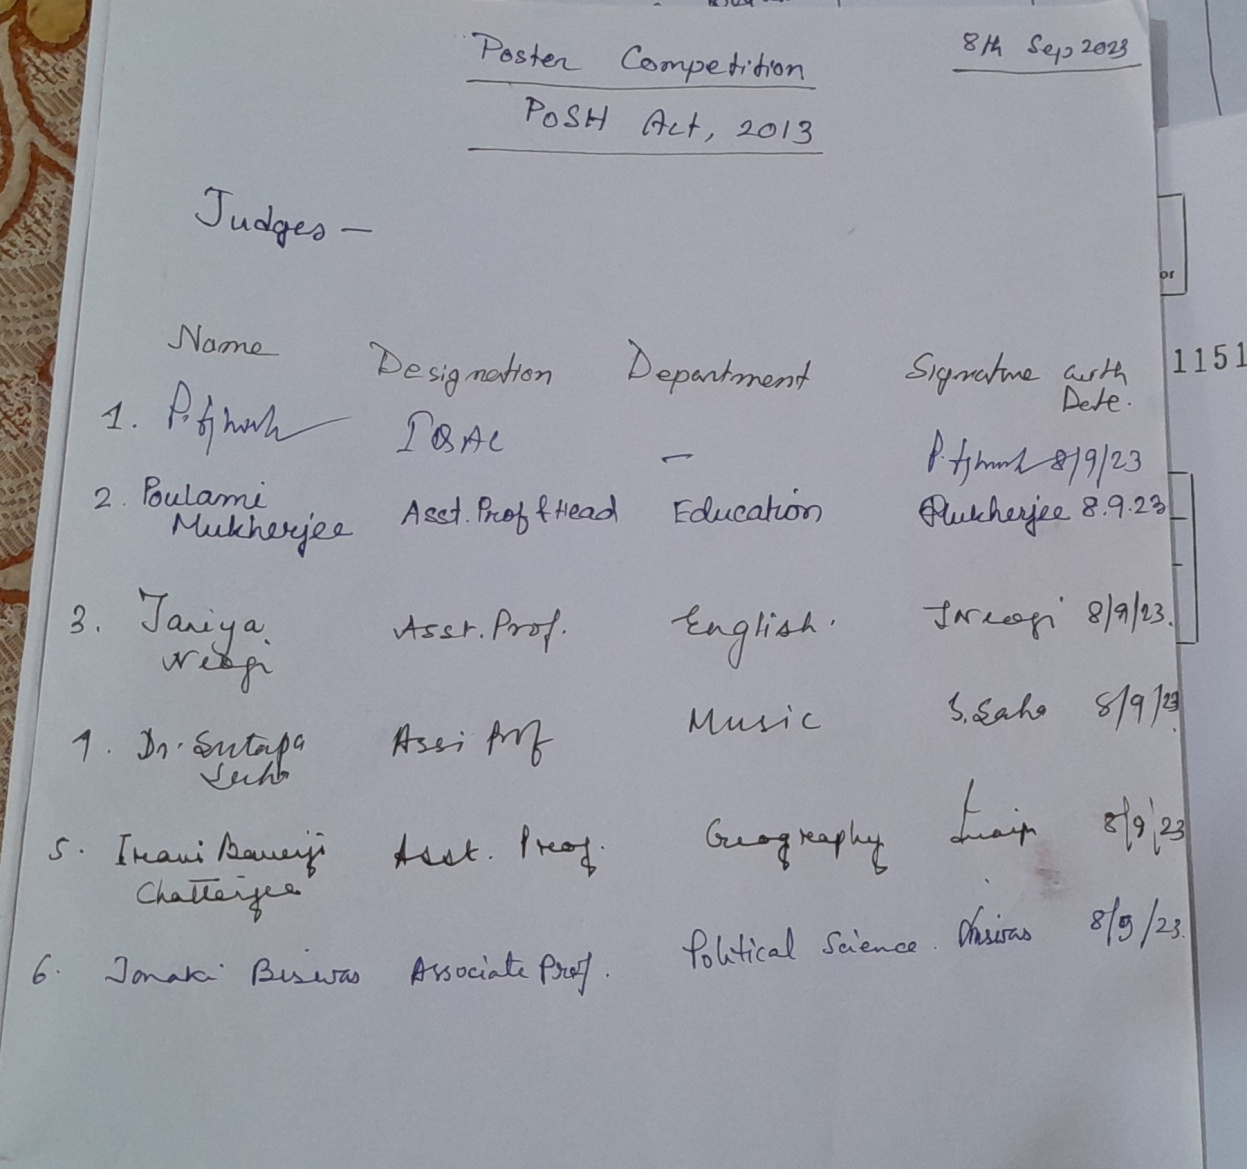 Poster Competition
8th Sep 2023
PoSH Act, 2013
Judges -
Name Designation Department Signature with Date.
1. P. Ghosh IQAC - P. Ghosh 8/9/23
2. Poulami Mukherjee Asst. Prof & Head Education PMukherjee 8.9.23
3. Taniya Neogi Asst. Prof. English. TNeogi 8/9/23.
4. Dr. Sutapa Saha Assi Prof Music S. Saha 8/9/23
5. Irani Banerji Chatterjee Asst. Prof. Geography 8/9/23
6. Jonaki Biswas Associate Prof. Political Science. JBiswas 8/9/23.
or
1151